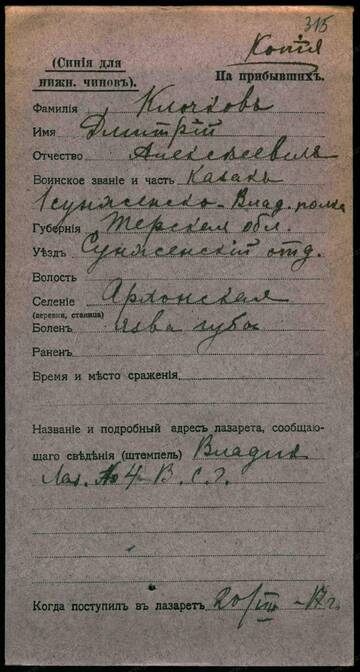 315
Копія
(Синія для
нижн. чиновъ).
На прибывшихъ.
Фамилія Клочковъ
Имя Дмитрій
Отчество Алексѣевичъ
Воинское званіе и часть казакъ
1 сунженско-Влад. полка
Губернія Терская обл.
Уѣздъ Сунженскій отд.
Волость
Селеніе Архонская
(деревня, станица)
Боленъ язва губы
Раненъ
Время и мѣсто сраженія
Названіе и подробный адресъ лазарета, сообщаю-
щаго свѣдѣнія (штемпель) Владик
Лаз. № 4 В. С. Г.
Когда поступилъ въ лазаретъ 20/III -17 г.